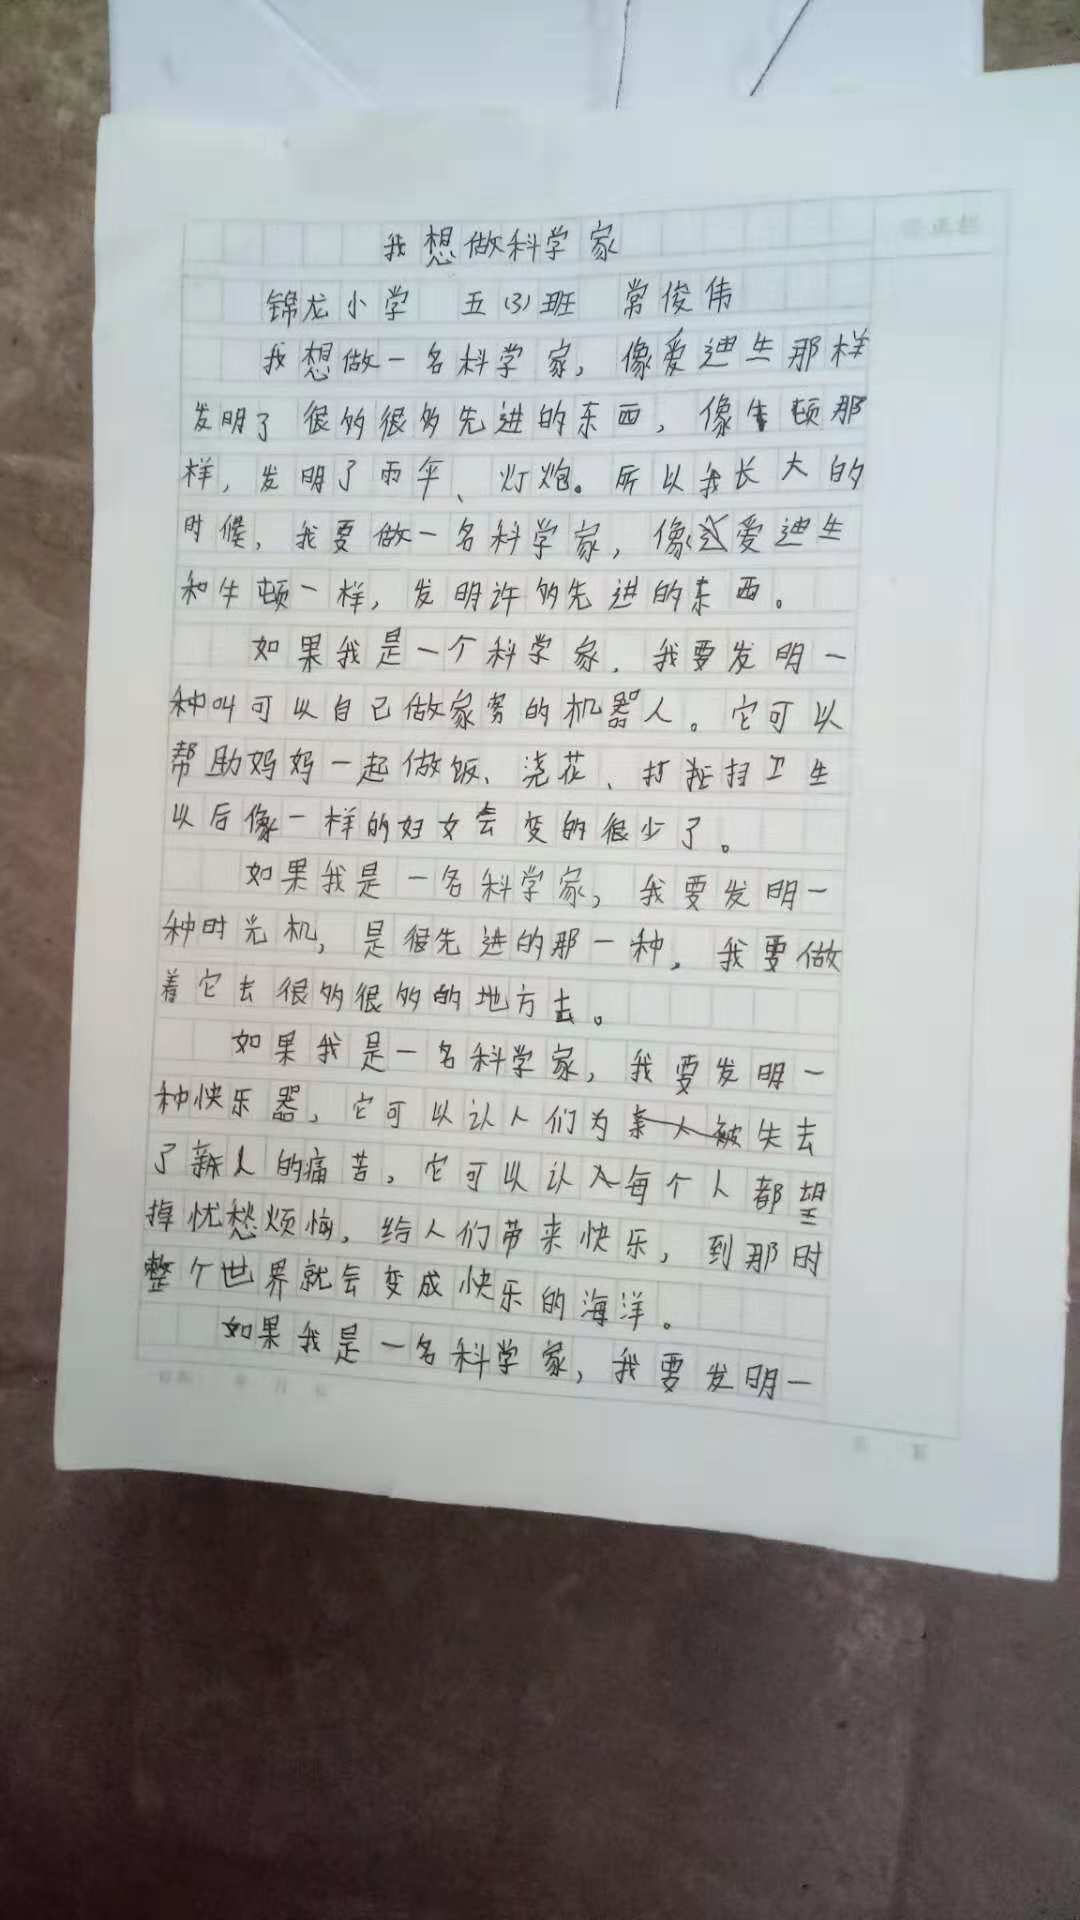 我想做科学家
锦龙小学 五(3)班 常俊伟
我想做一名科学家，像爱迪生那样
发明了很多很多先进的东西，像牛顿那
样，发明了雨伞、灯炮。所以我长大的
时候，我要做一名科学家，像爱迪生
和牛顿一样，发明许多先进的东西。
如果我是一个科学家，我要发明一
种叫可以自己做家务的机器人。它可以
帮助妈妈一起做饭、浇花、打扫卫生
以后像一样的妇女会变的很少了。
如果我是一名科学家，我要发明一
种时光机，是很先进的那一种，我要做
着它去很多很多的地方去。
如果我是一名科学家，我要发明一
种快乐器，它可以认人们为失去
了亲人的痛苦，它可以认每个人都望
掉忧愁烦恼，给人们带来快乐，到那时
整个世界就会变成快乐的海洋。
如果我是一名科学家，我要发明一